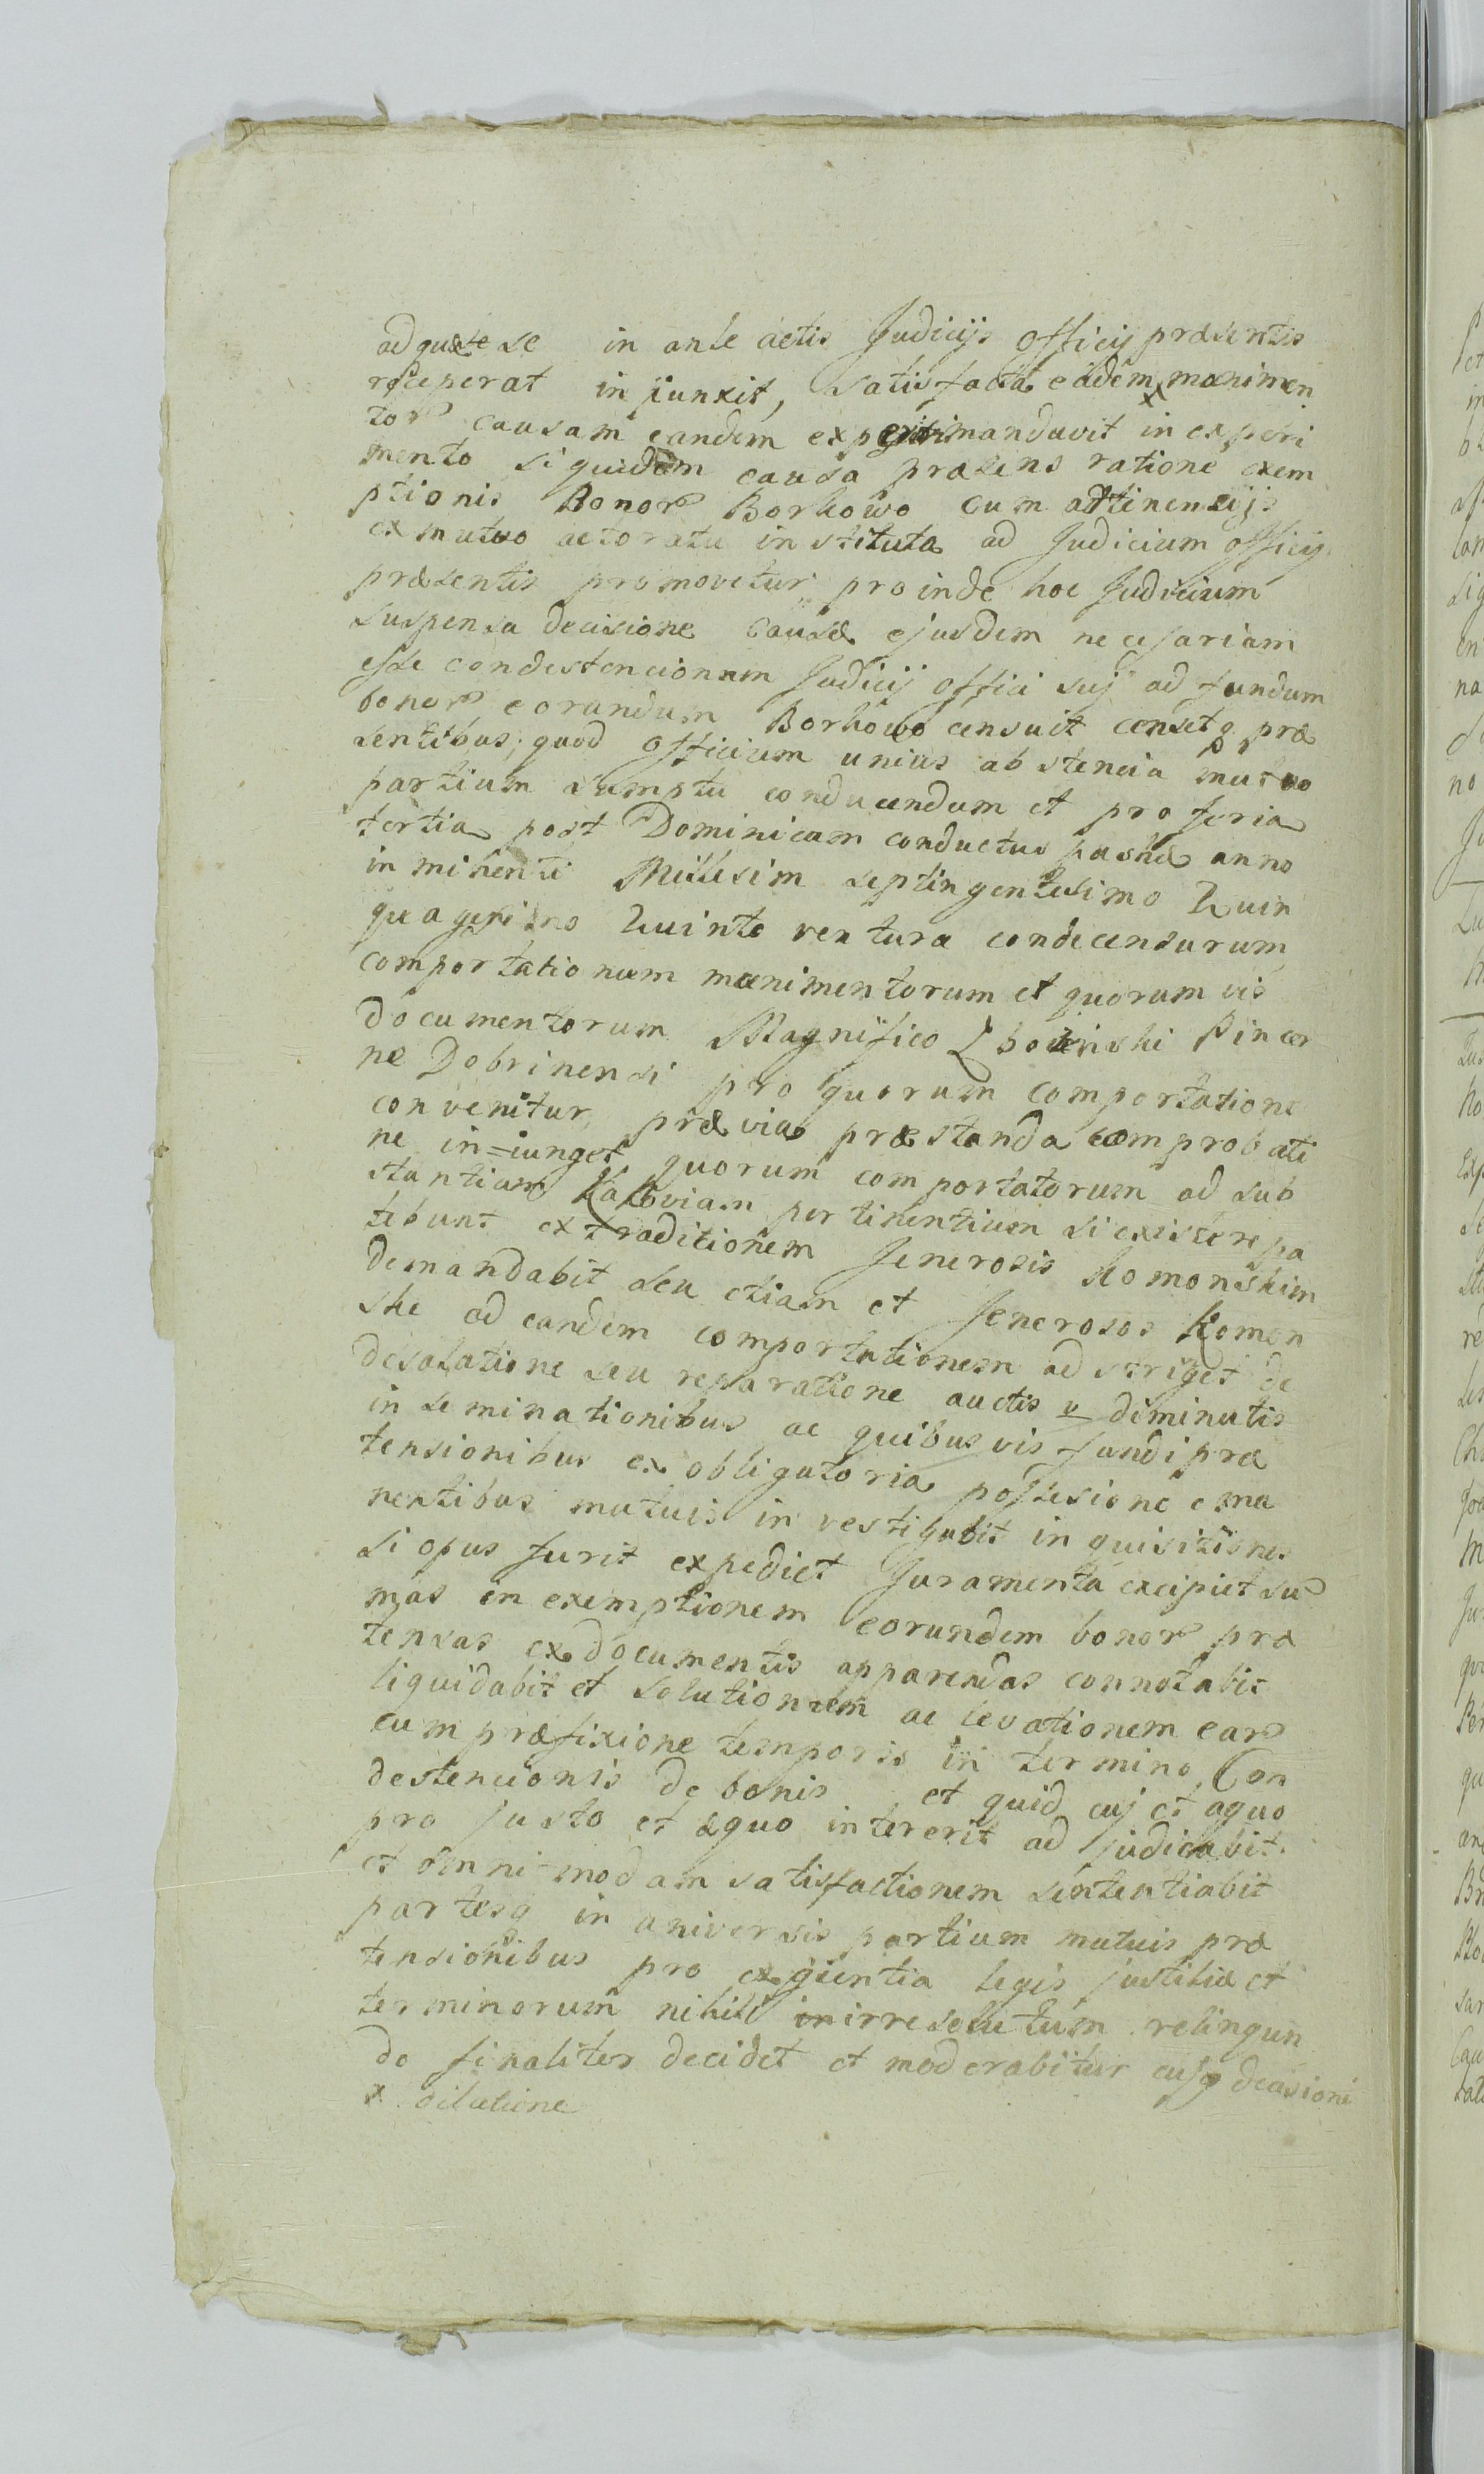 ad quæ se in ante actis Judicijs Officij præsentis
receperat injunxit, satisfacta eadem x munimen
tor causam eandem experiri mandavit in experi
mento siquidem causa præsens ratione exem
ptionis Bonor Borkowo cum attinencijs
ex mutuo actoratu instituta ad Judicium officij
præsentis promovetur proinde hoc Judicium
suspensa decisione causæ ejusdem necessariam
esse condestencionem Judicij offici suj ad fundum
bonor eorundum Borkowo censuit censetq præ
sentibus, quod Officium unius abstencia mutuo
partium sumptu conducendum et pro feria
tertia post Dominicam conductus paschæ anno
in minenti Millesim septingentesimo Quin
quagesimo Quinto ventura condecensurum
comportationem munimentorum et quorum vis
documentorum Magnifico Zboinski Pincer
næ Dobrinensi pro quorum comportatione
convenitur, prævia præstanda comprobati
ne in=iunget quorum comportatorum ad sub
stantiam pertinentium si existere pa
tebunt extraditionem Generosis Komonskim
demandabit seu etiam et Generosos Komon
ske ad eandem comportationem adstriget de
desolatione seu reparatione auctis v diminutis
in seminationibus ac quibus vis fundi præ
tensionibus ex obligatoria possesione ema
nentibus mutuis investigabit inquisitiones
si opus furit expediet Juramenta excipiet su
mas in exemptionem eorundem bonor præ
tensas ex documentis apparendas connotabit
liquidabit et solutionem ac levationem ear
cum præfixione temporis in termino Con
destencionis de bonis et quid cuj et aquo
pro justo et æquo intererit adjudicabit
et omnimodam satisfactionem sententiabit
partesq in universis partium mutuis præ
tensionibus pro exgiientia legis justitiæ et
terminorum nihil irresolutum relinqun
do finaliter decidet et moderabitur cujq decisioni
x dilatione